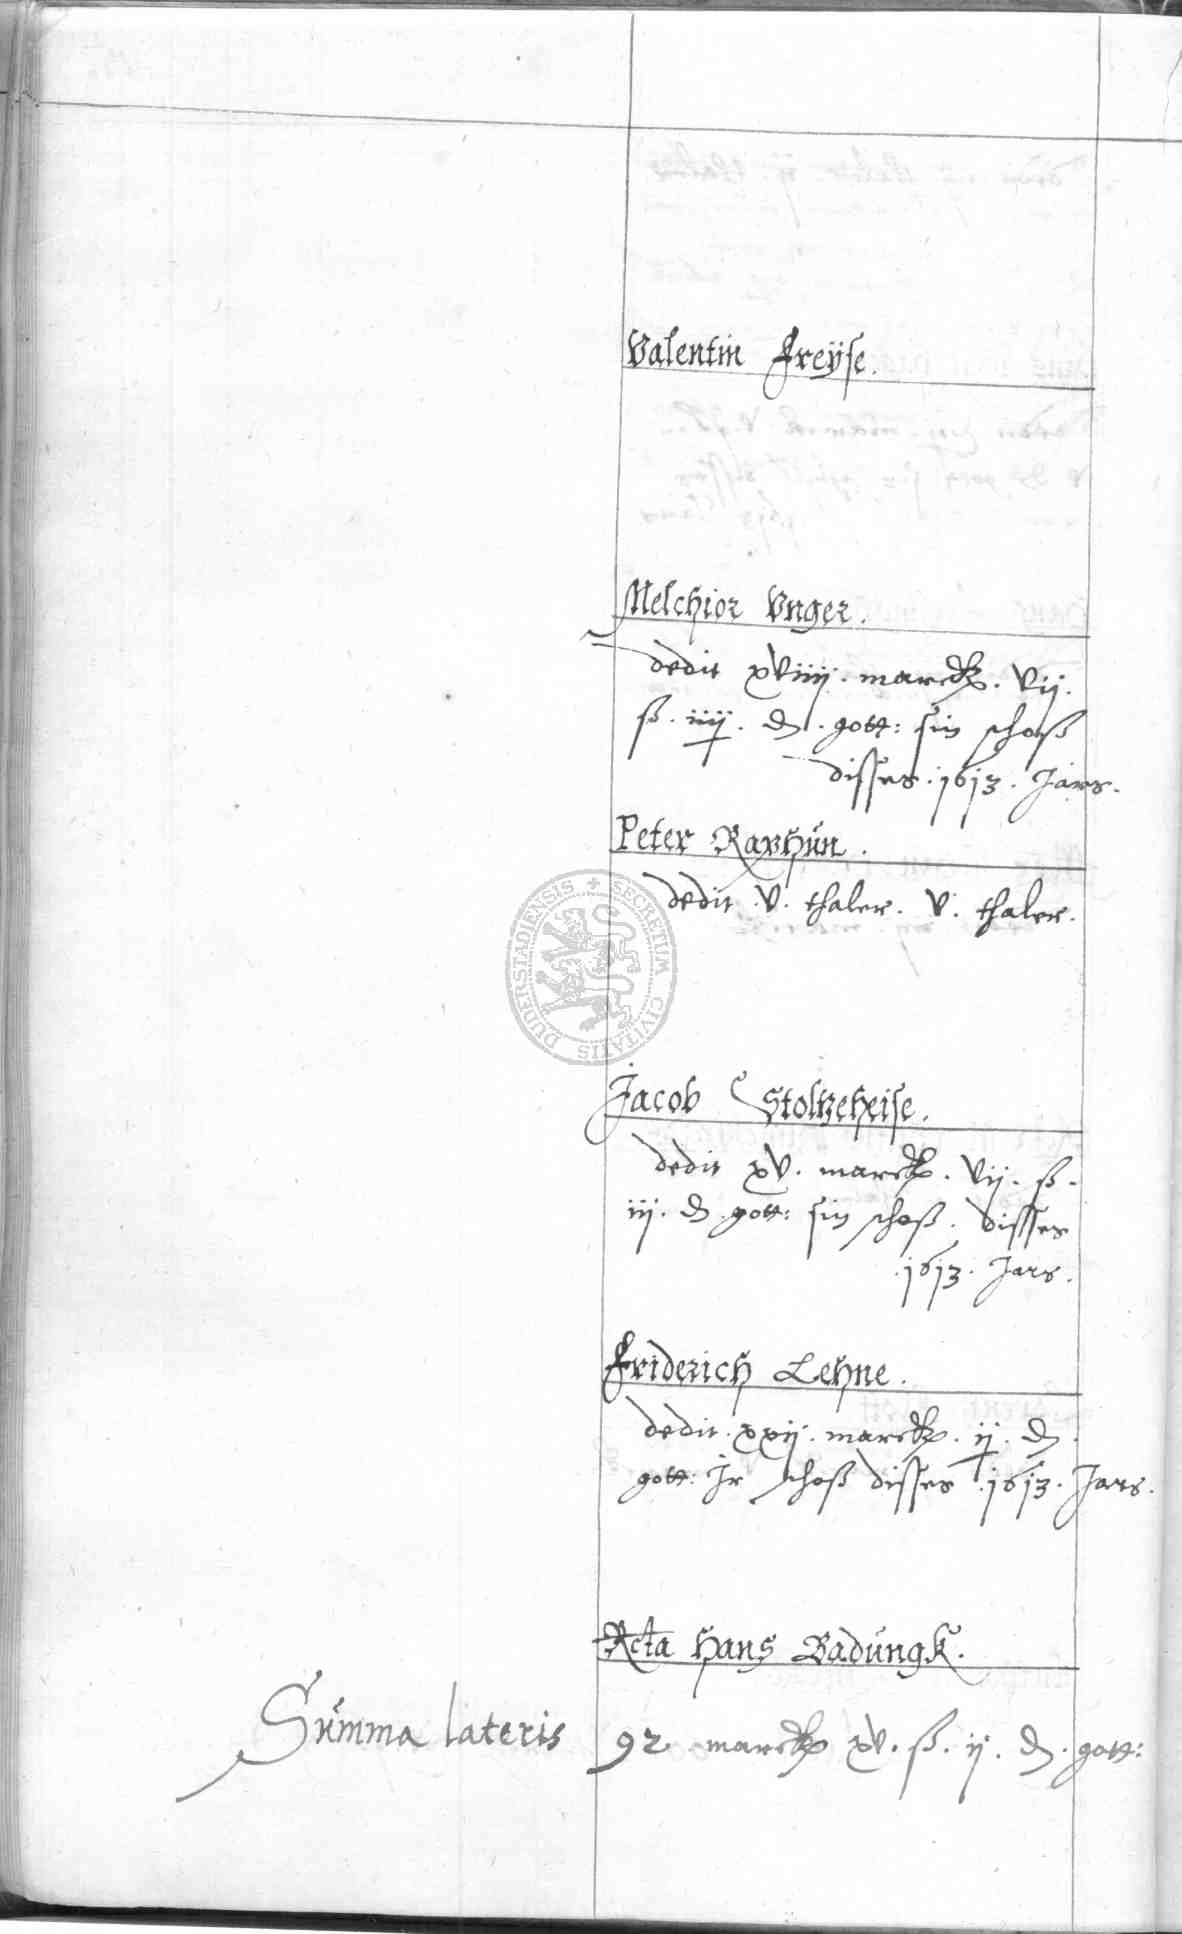 Valentin Freÿse.
Melchior Vnger.
dedit xviiij. marck. vij.
ß. iiij. ₰. gott: sin schoß
disses .1613. Jars.
Peter Raphún.
dedit .v. thaler. v. thaler.
DUDERSTADIENSIS + SECRETUM CIVITATIS
Jacob Stoltzeheise.
dedit xv. marck. vij. ß.
iij. ₰. gott: sin schoß. disses
.1613. Jars.
Friderich Lehne.
dedit. xxij. marck. ij. ₰.
gott: Jr schoß disses .1613. Jars.
Hans Badúngk.
Súmma lateris 92 marck xv. ß. ij. ₰. gott: